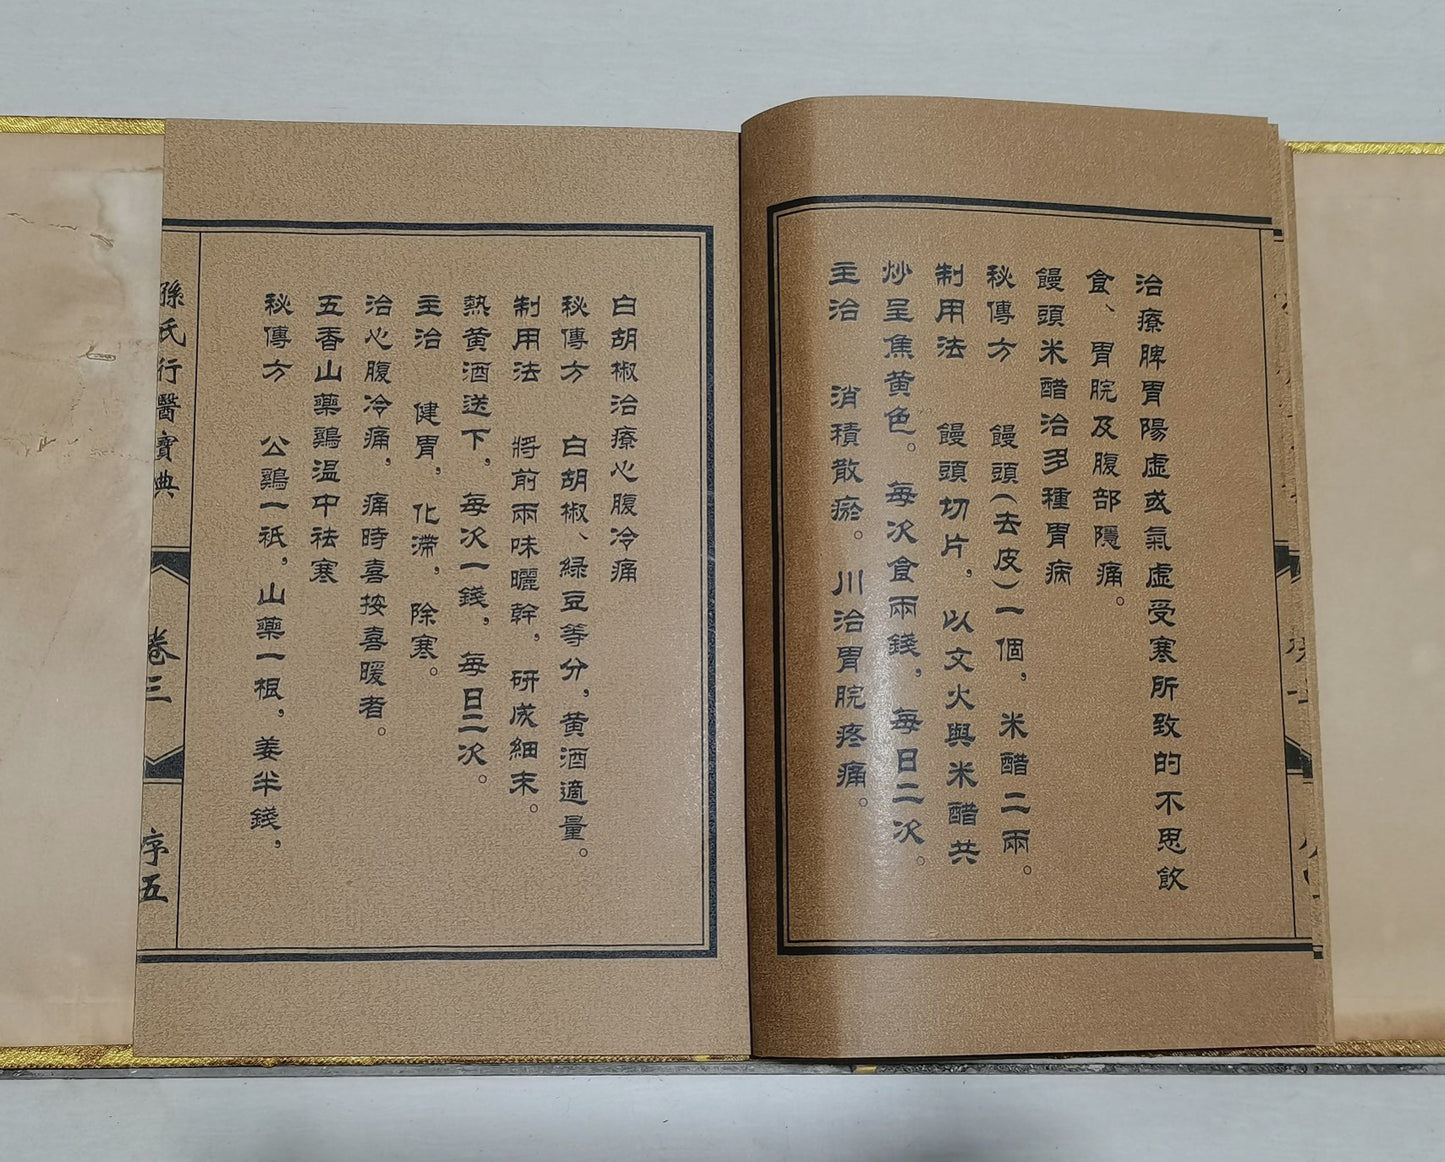 治療脾胃陽虛或氣虛受寒所致的不思飲
食、胃脘及腹部隱痛。
饅頭米醋治多種胃病
秘傳方 饅頭(去皮)一個,米醋二兩。
制用法 饅頭切片,以文火與米醋共
炒呈焦黄色。每次食兩錢,每日二次。
主治 消積散瘀。川治胃脘疼痛。
白胡椒治療心腹冷痛
秘傳方 白胡椒、綠豆等分,黄酒適量。
制用法 將前兩味曬幹,研成細末。
熱黄酒送下,每次一錢,每日二次。
主治 健胃,化滯,除寒。
治心腹冷痛,痛時喜按喜暖者。
五香山藥鷄温中祛寒
秘傳方 公鷄一祇,山藥一根,姜半錢,
孫氏行醫寶典
卷三
序五